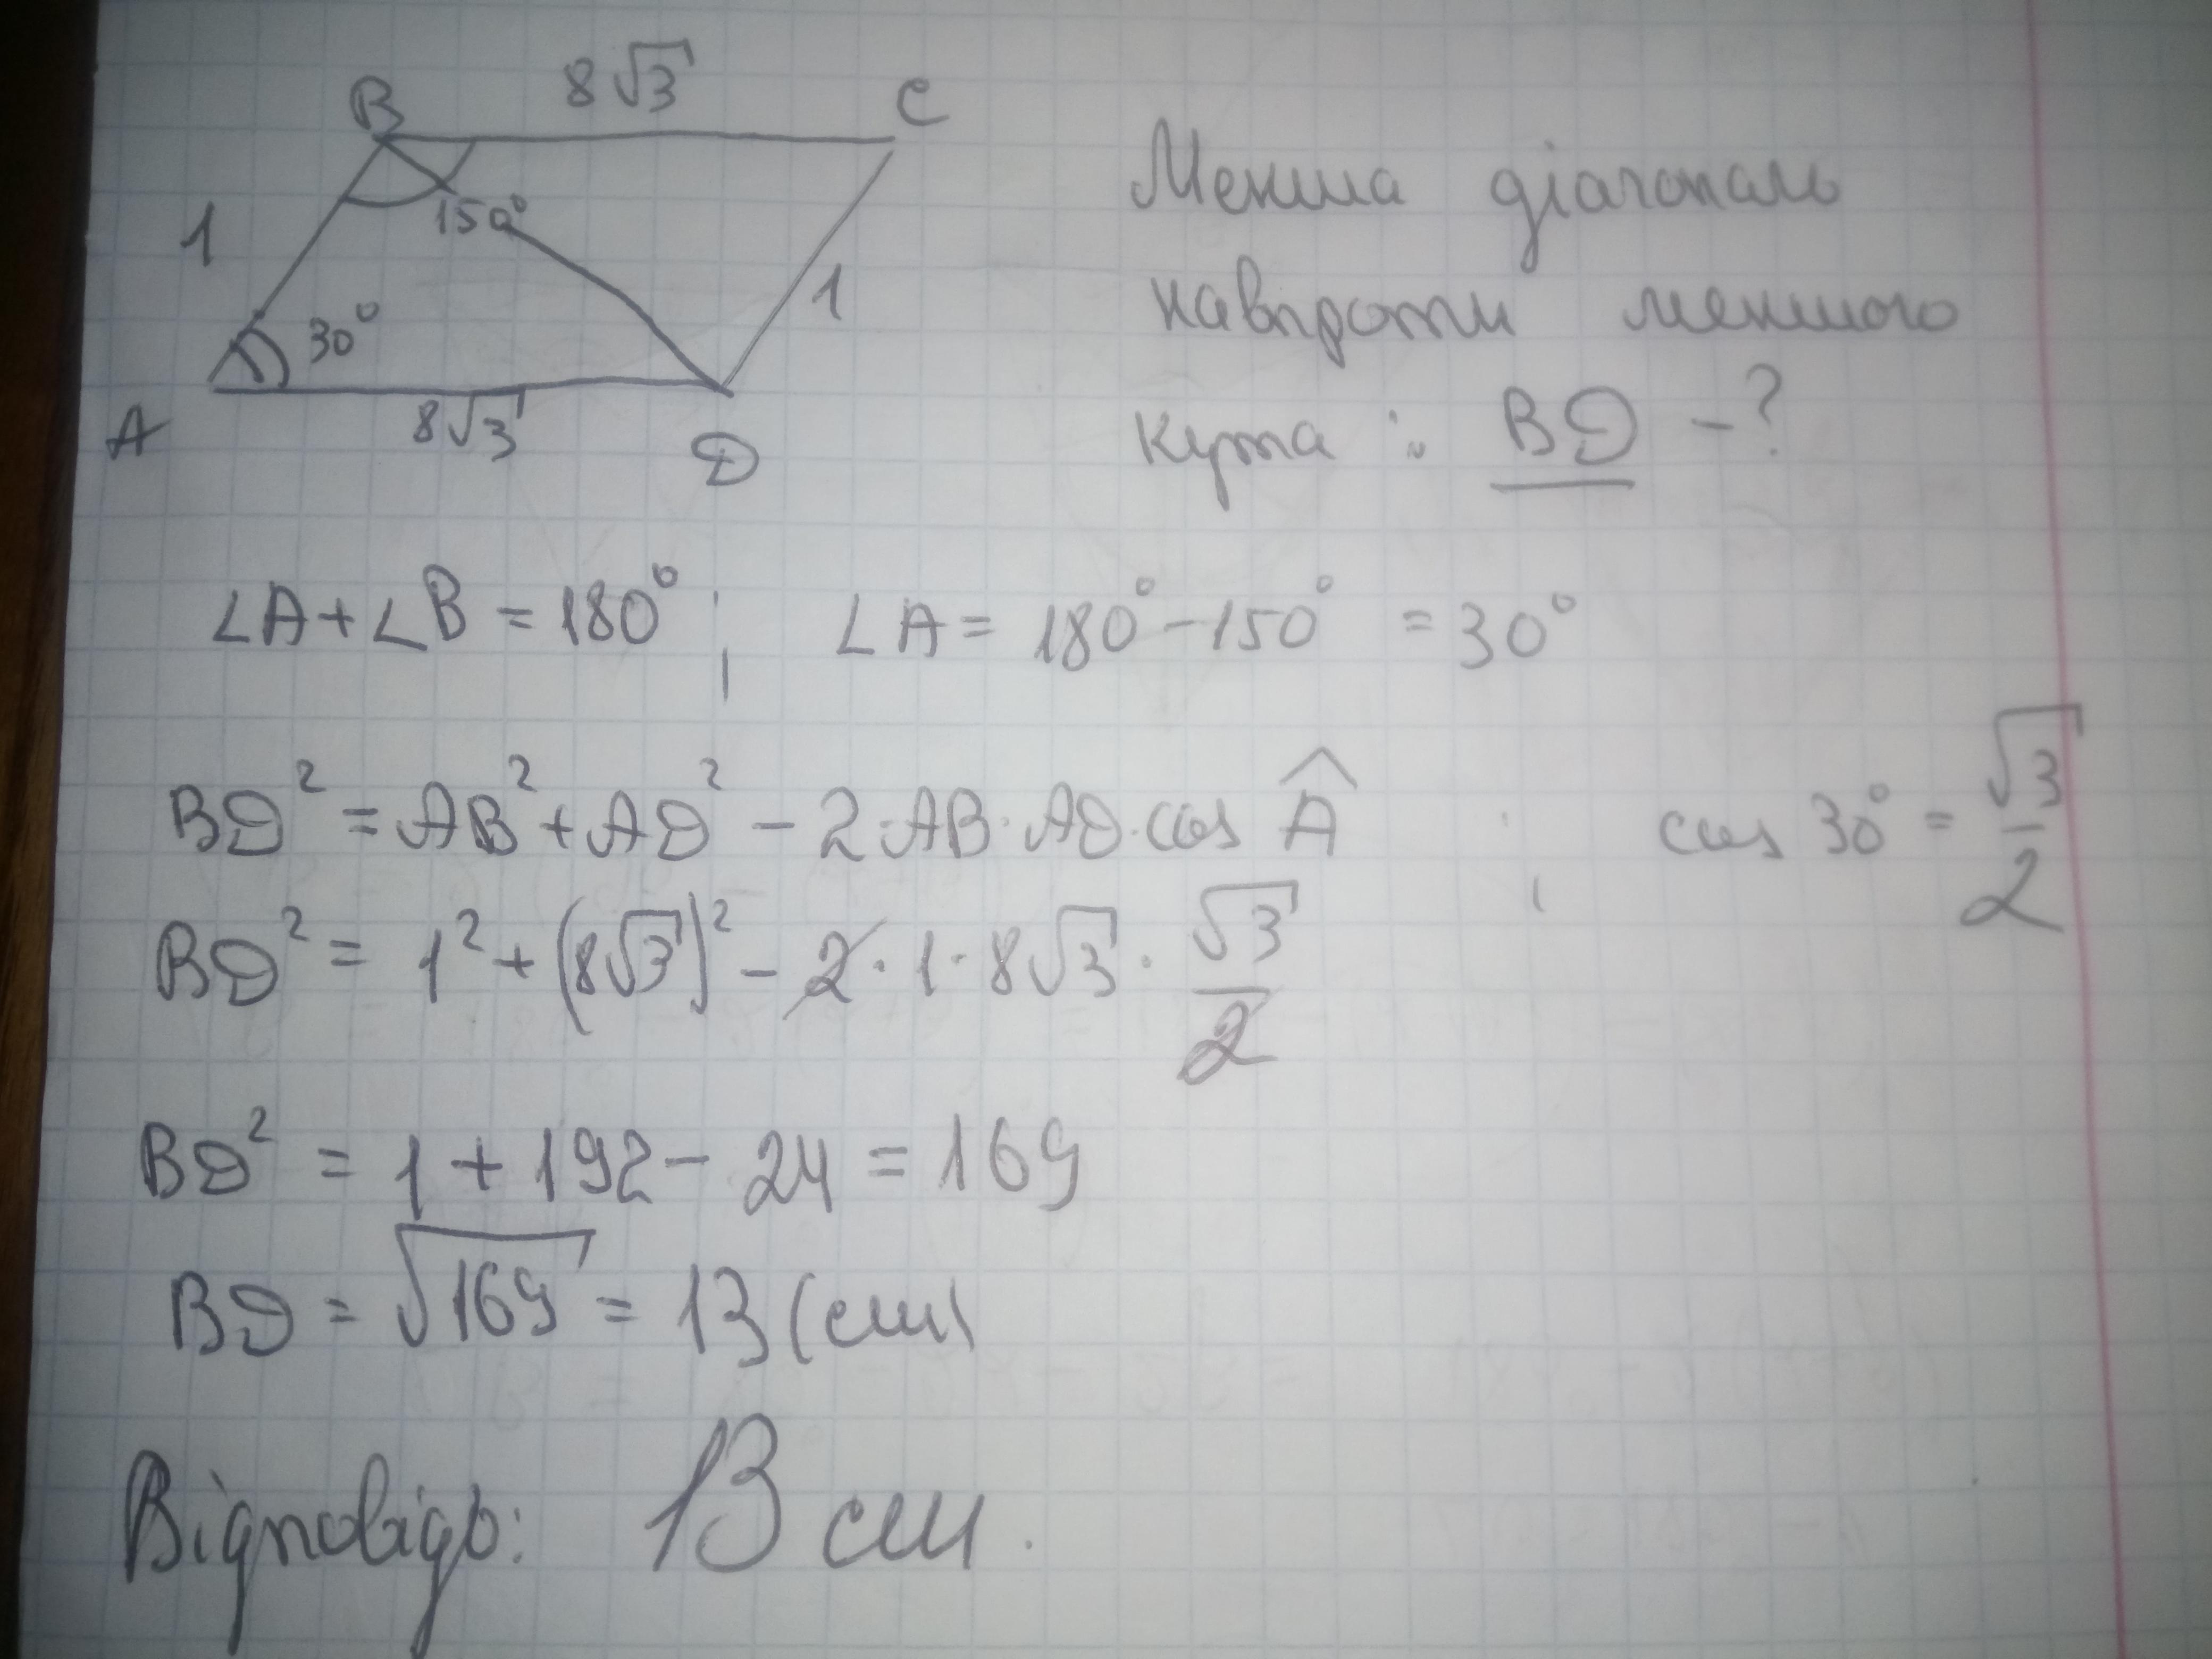 B 8√3 C
1 150°
30° 1
A 8√3 D
Менша діагональ
навпроти меншого
кута : BD - ?
∠A + ∠B = 180° ; ∠A = 180° - 150° = 30°
BD² = AB² + AD² - 2·AB·AD·cos Â ; cos 30° = √3/2
BD² = 1² + (8√3)² - 2·1·8√3·√3/2
BD² = 1 + 192 - 24 = 169
BD = √169 = 13 (см)
Відповідь: 13 см.